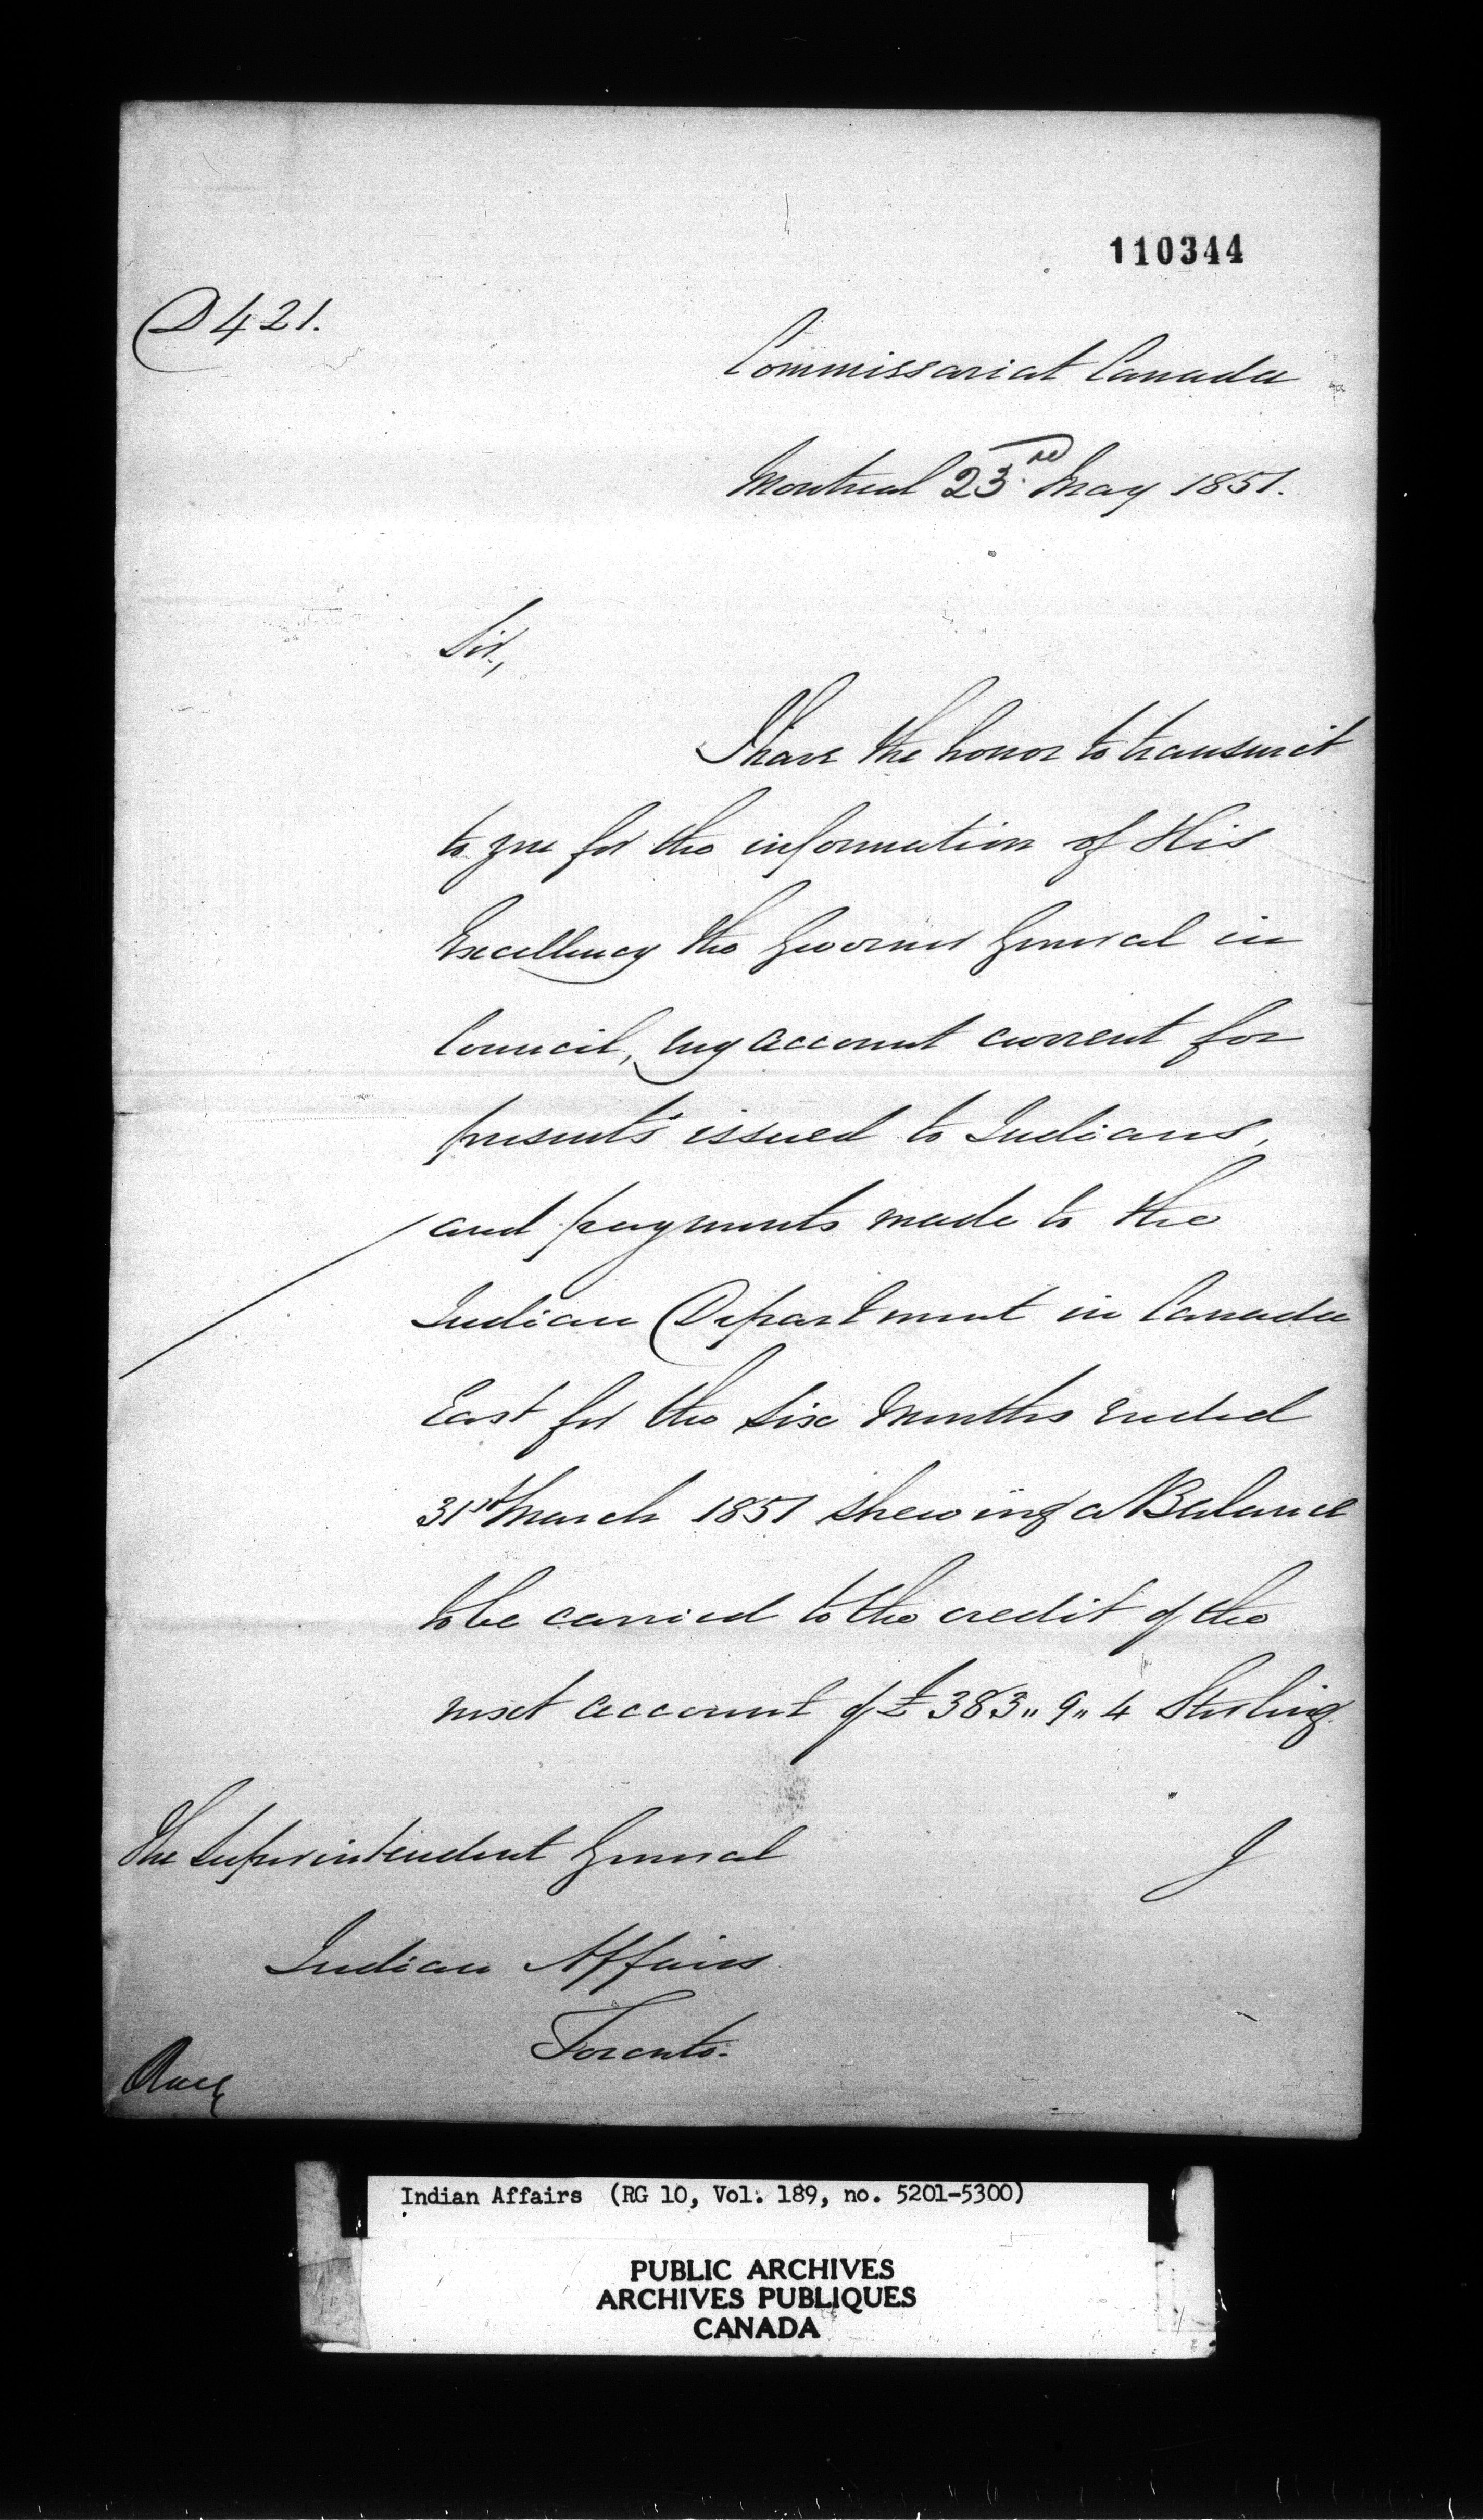 110344
D 421.
Commissariat Canada
Montreal 23rd May 1851.
Sir,
I have the honor to transmit
to you for the information of His
Excellency the Governor General in
Council, my account current for
presents issued to Indians,
and payments made to the
Indian Department in Canada
East for the Six Months ended
31st March 1851 shewing a Balance
to be carried to the credit of the
next account of £383"9"4 Sterling
I
The Superintendent General
Indian Affairs
Toronto.
Indian Affairs (RG 10, Vol. 189, no. 5201-5300)
PUBLIC ARCHIVES
ARCHIVES PUBLIQUES
CANADA